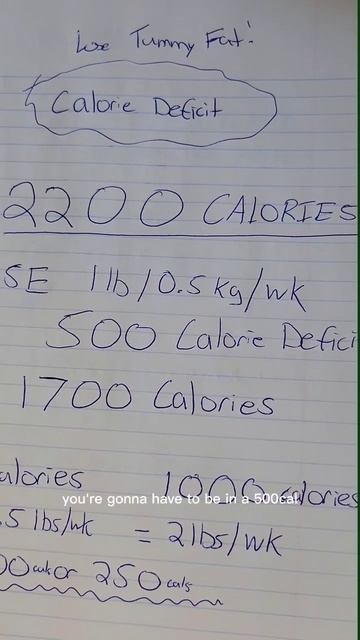 Lose Tummy Fat:
Calorie Deficit
2200 CALORIES
SE 1lb/0.5kg/wk
500 Calorie Defici
1700 Calories
alories 1000 calories
you're gonna have to be in a 500cal
.5 lbs/wk = 2lbs/wk
00cal or 250cals